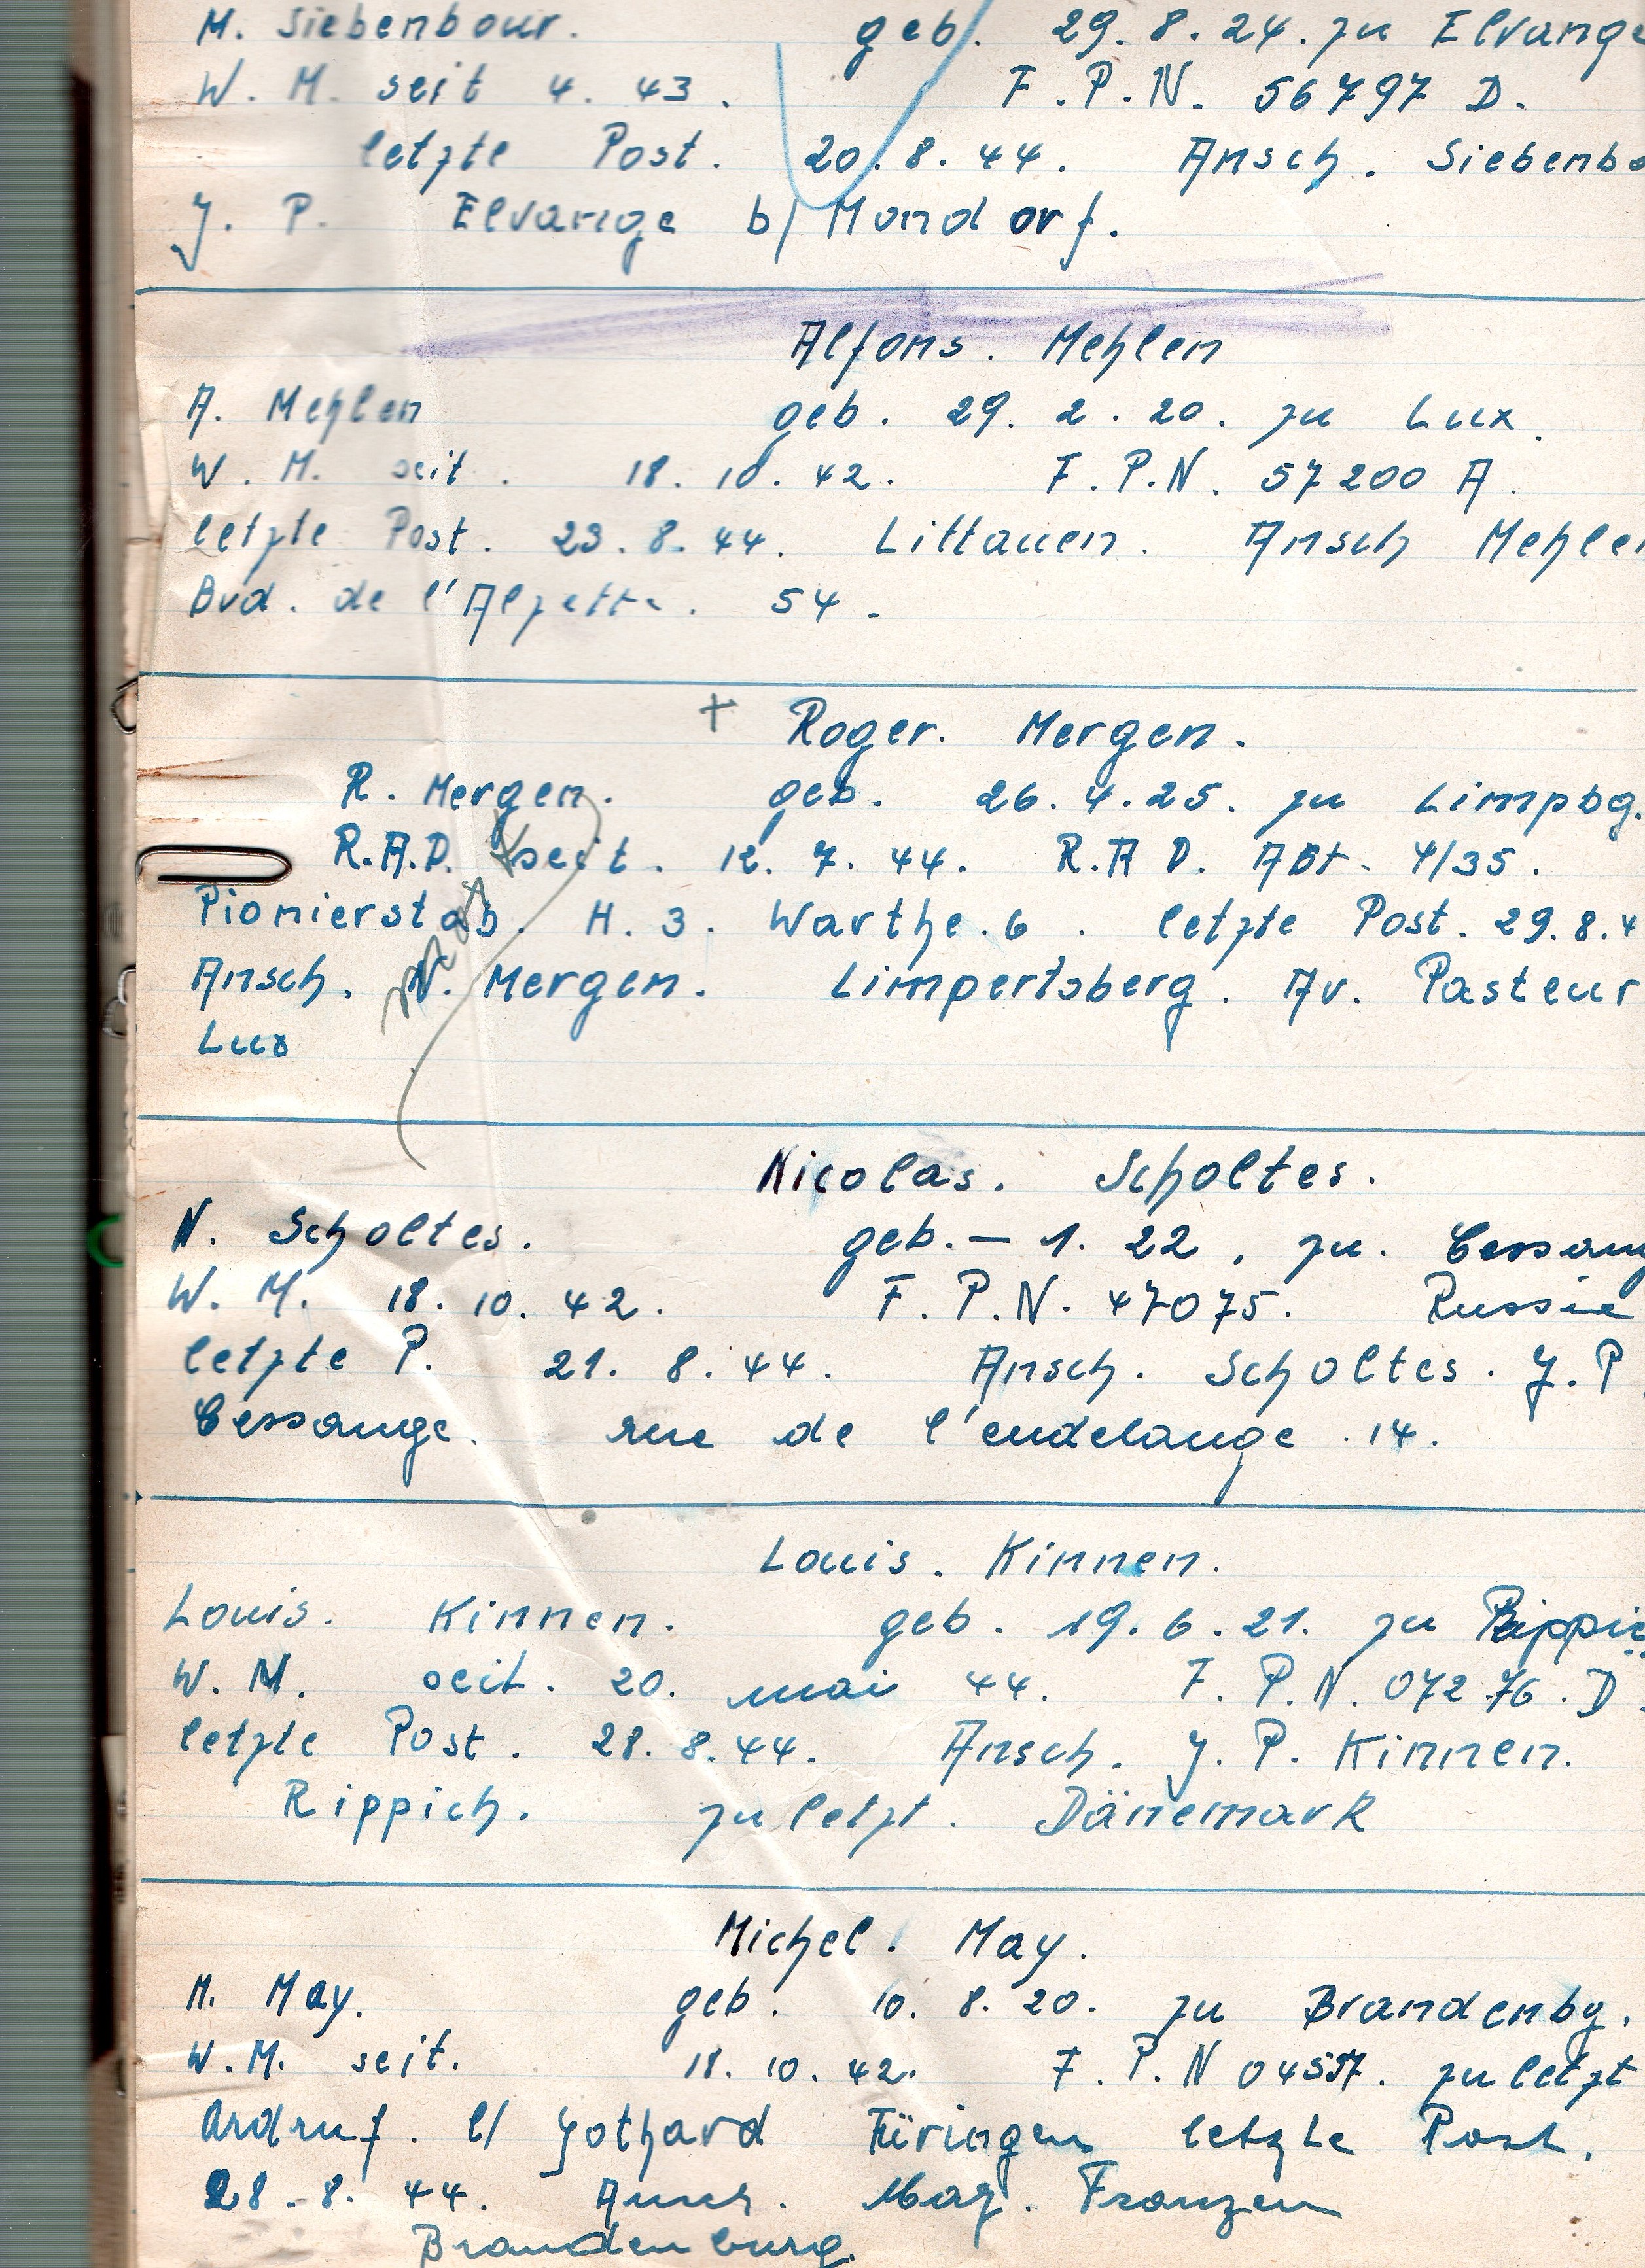 M. Siebenbour. geb. 29. 8. 24. zu Elvange
W. M. seit 4. 43. F.P.N. 56797 D.
letzte Post. 20. 8. 44. Ansch. Siebenbo
J. P. Elvange b/ Mondorf.
Alfons. Mehlen
A. Mehlen geb. 29. 2. 20. zu Lux.
W. M. seit. 18. 10. 42. F.P.N. 57200 A.
letzte Post. 23. 8. 44. Littauen. Ansch Mehlen
Bvd. de l'Alzette. 54.
+ Roger. Mergen.
R. Mergen. geb. 26. 4. 25. zu Limpbg.
R.A.D. seit. 12. 7. 44. R.A D. ABt. 4/35.
Pionierstab. H. 3. Warthe. 6. letzte Post. 29. 8. 4
Ansch. N. Mergen. Limpertsberg. Av. Pasteur
Lux
Nicolas. Scholtes.
N. Scholtes. geb. — 1. 22, zu. Cessang
W. M. 18. 10. 42. F. P.N. 47075. Russie
letzte P. 21. 8. 44. Ansch. Scholtes. J. P.
Cessange. rue de l'eudelange. 14.
Louis. Kinnen.
Louis. Kinnen. geb. 19. 6. 21. zu Rippic
W. M. seit. 20. mai 44. F. P.N. 072.76. D.
letzte Post. 28. 8. 44. Ansch. J. P. Kinnen.
Rippich. zuletzt. Dänemark
Michel. May.
M. May. geb. 10. 8. 20. zu Brandenbg.
W.M. seit. 18. 10. 42. F. P. N zuletzt
Ardruf. b/ Gothard Türingen letzte Post.
28. 8. 44. May. Franzen
Brandenburg.